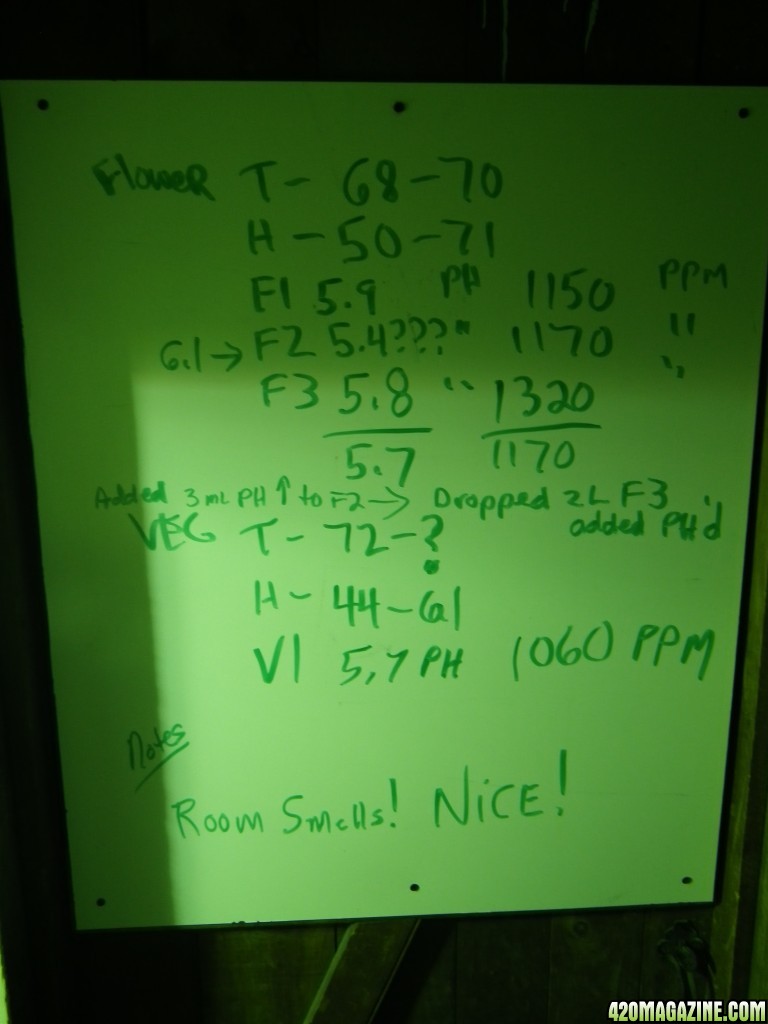 Flower T - 68-70
H - 50-71
F1 5.9 PH 1150 PPM
6.1 → F2 5.4???" 1170 "
F3 5.8 " 1320 "
5.7 1170
Added 3 mL PH ↑ to F2 → Dropped 2L F3
added PH'd
VEG T - 72-?
H - 44-61
V1 5.7 PH 1060 PPM
Notes
Room Smells! NiCE!
420MAGAZINE.COM